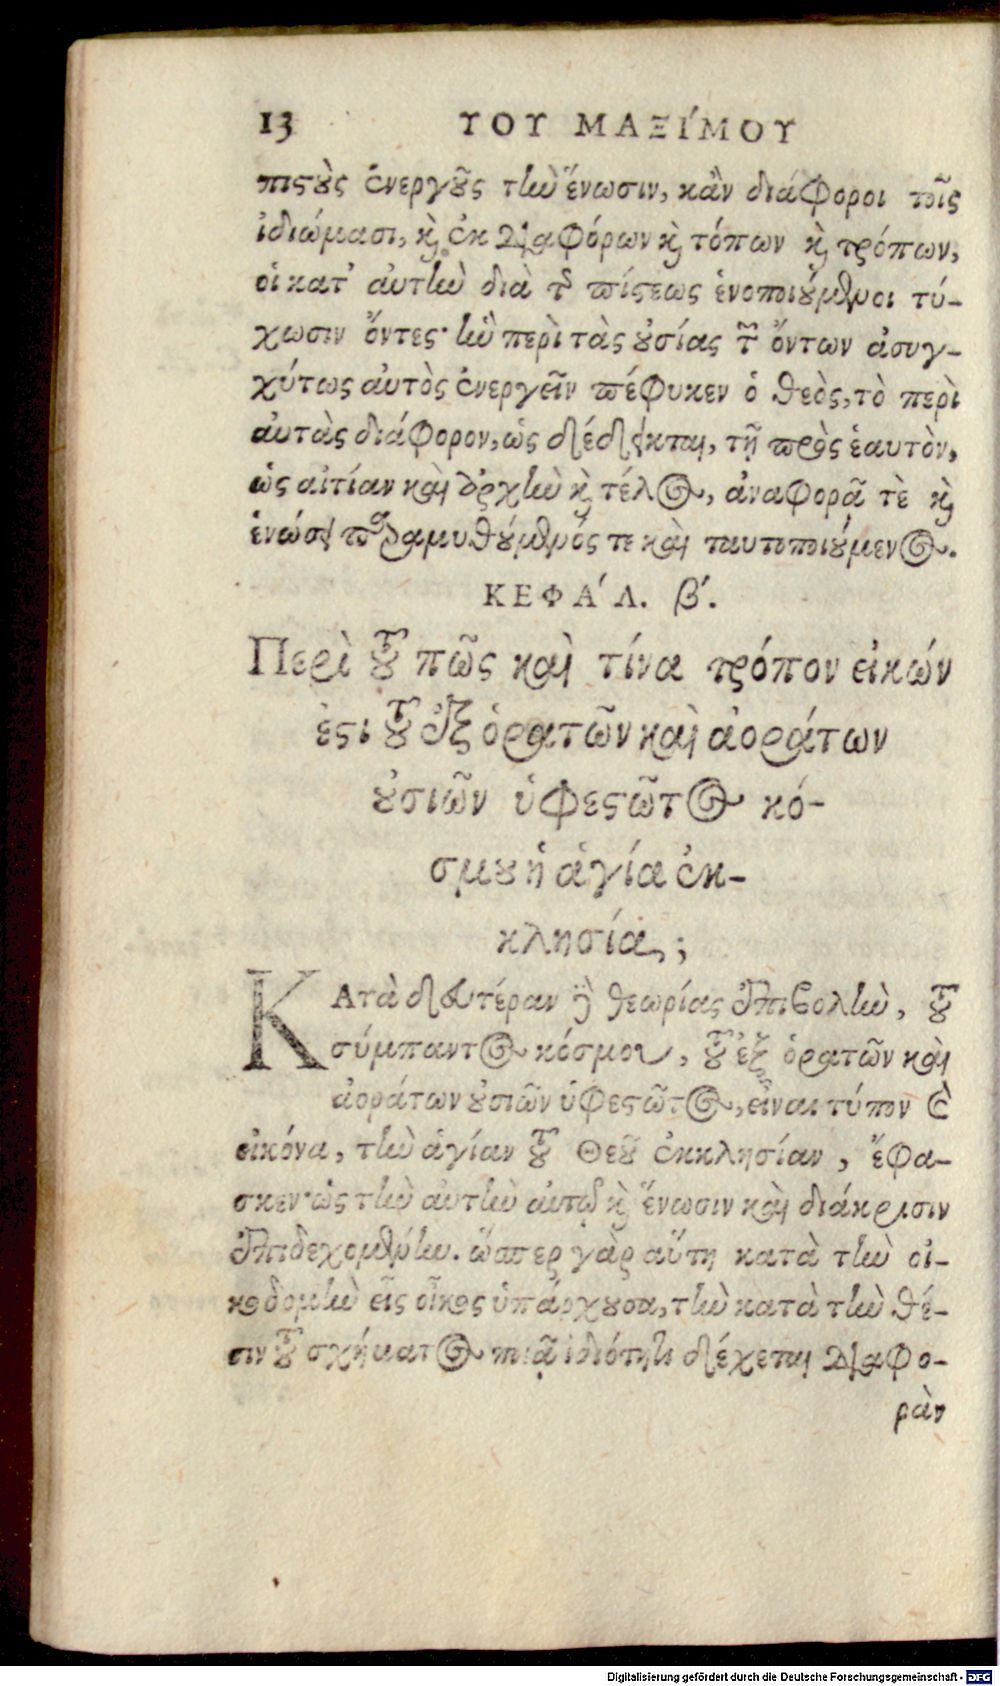 13 ΤΟΥ ΜΑΞΊΜΟΥ
πιστοὺς ἐνεργοῦς τὴν ἕνωσιν, κἂν διάφοροι τοῖς
ἰδιώμασι, καὶ ἐκ διαφόρων καὶ τόπων καὶ τρόπων,
οἱ κατ' αὐτὴν διὰ τῆς πίστεως ἑνοποιούμενοι τύ-
χωσιν ὄντες· ἣν περὶ τὰς οὐσίας τῶν ὄντων ἀσυγ-
χύτως αὐτὸς ἐνεργεῖν πέφυκεν ὁ θεὸς, τὸ περὶ
αὐτὰς διάφορον, ὡς δέδεικται, τῇ πρὸς ἑαυτὸν,
ὡς αἰτίαν καὶ ἀρχὴν καὶ τέλος, ἀναφορᾷ τὲ καὶ
ἑνώσει παραμυθούμενός τε καὶ ταυτοποιούμενος.
ΚΕΦΑ´Λ. β´.
Περὶ τοῦ πῶς καὶ τίνα τρόπον εἰκών
ἐστι τοῦ ἐξ ὁρατῶν καὶ ἀοράτων
οὐσιῶν ὑφεστῶτος κό-
σμου ἡ ἁγία ἐκ-
κλησία;
ΚΑτὰ δευτέραν δὲ θεωρίας ἐπιβολὴν, τοῦ
σύμπαντος κόσμου, τοῦ ἐξ ὁρατῶν καὶ
ἀοράτων οὐσιῶν ὑφεστῶτος, εἶναι τύπον καὶ
εἰκόνα, τὴν ἁγίαν τοῦ Θεοῦ ἐκκλησίαν, ἔφα-
σκεν· ὡς τὴν αὐτὴν αὐτῷ καὶ ἕνωσιν καὶ διάκρισιν
ἐπιδεχομένην. ὥσπερ γὰρ αὕτη κατὰ τὴν οἰ-
κοδομὴν εἷς οἶκος ὑπάρχουσα, τὴν κατὰ τὴν θέ-
σιν τοῦ σχήματος ποιᾷ ἰδιότητι δέχεται διαφο-
ρὰν
Digitalisierung gefördert durch die Deutsche Forschungsgemeinschaft - DFG